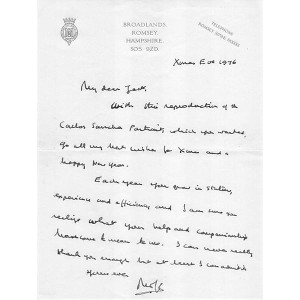 BROADLANDS,
ROMSEY,
HAMPSHIRE.
SO5 9ZD.
TELEPHONE
ROMSEY
Xmas Eve 1976
My dear Jack,
With this reproduction of the
Carlos Sancha Portrait, which you wanted,
go all my best wishes for Xmas and a
happy New Year.
Each year you grow in stature,
experience and efficiency and I am sure you
realize what your help and companionship
have come to mean to me. I can never really
thank you enough but at least I can admit it
Yours ever